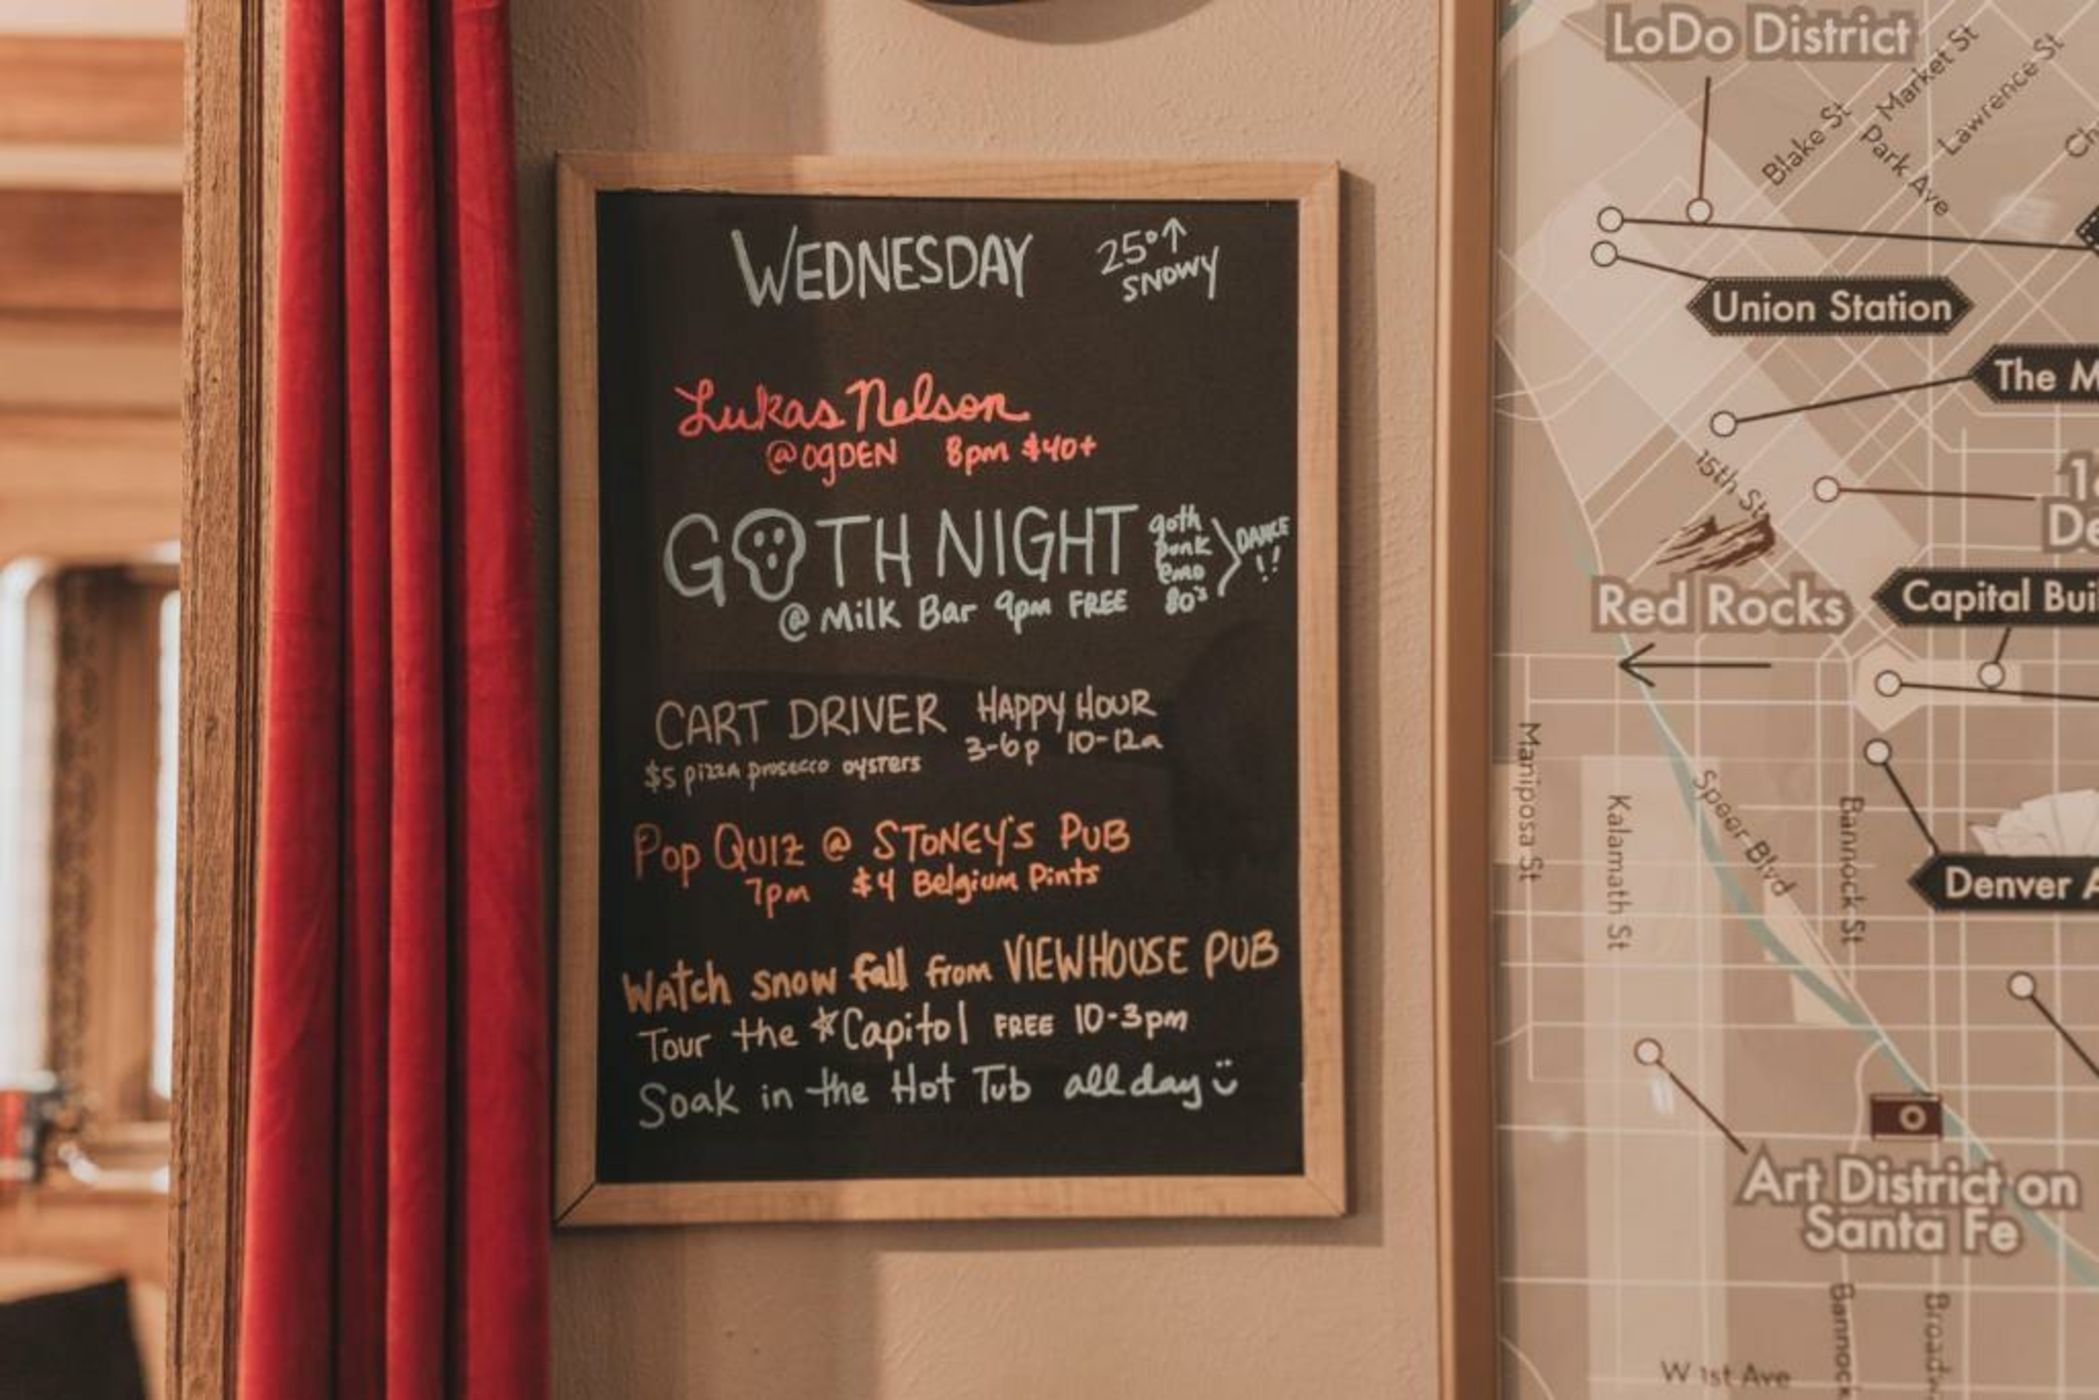 WEDNESDAY
25°↑
SNOWY
Lukas Nelson
@ OGDEN 8pm $40+
GOTH NIGHT
goth
punk
emo
80's
DANCE
!!
@ Milk Bar 9pm FREE
CART DRIVER HAPPY HOUR
3-6p 10-12a
$5 pizza prosecco oysters
Pop QUIZ @ STONEY'S PUB
7pm $4 Belgium Pints
Watch snow fall from VIEWHOUSE PUB
Tour the *Capitol FREE 10-3pm
Soak in the Hot Tub all day
LoDo District
Market St
Lawrence St
Blake St
Park Ave
Ch
Union Station
The M
15th St
16
De
Red Rocks
Capital Bui
Mariposa St
Kalamath St
Speer Blvd
Bannock St
Denver A
Art District on
Santa Fe
Bannock
Broad
W 1st Ave